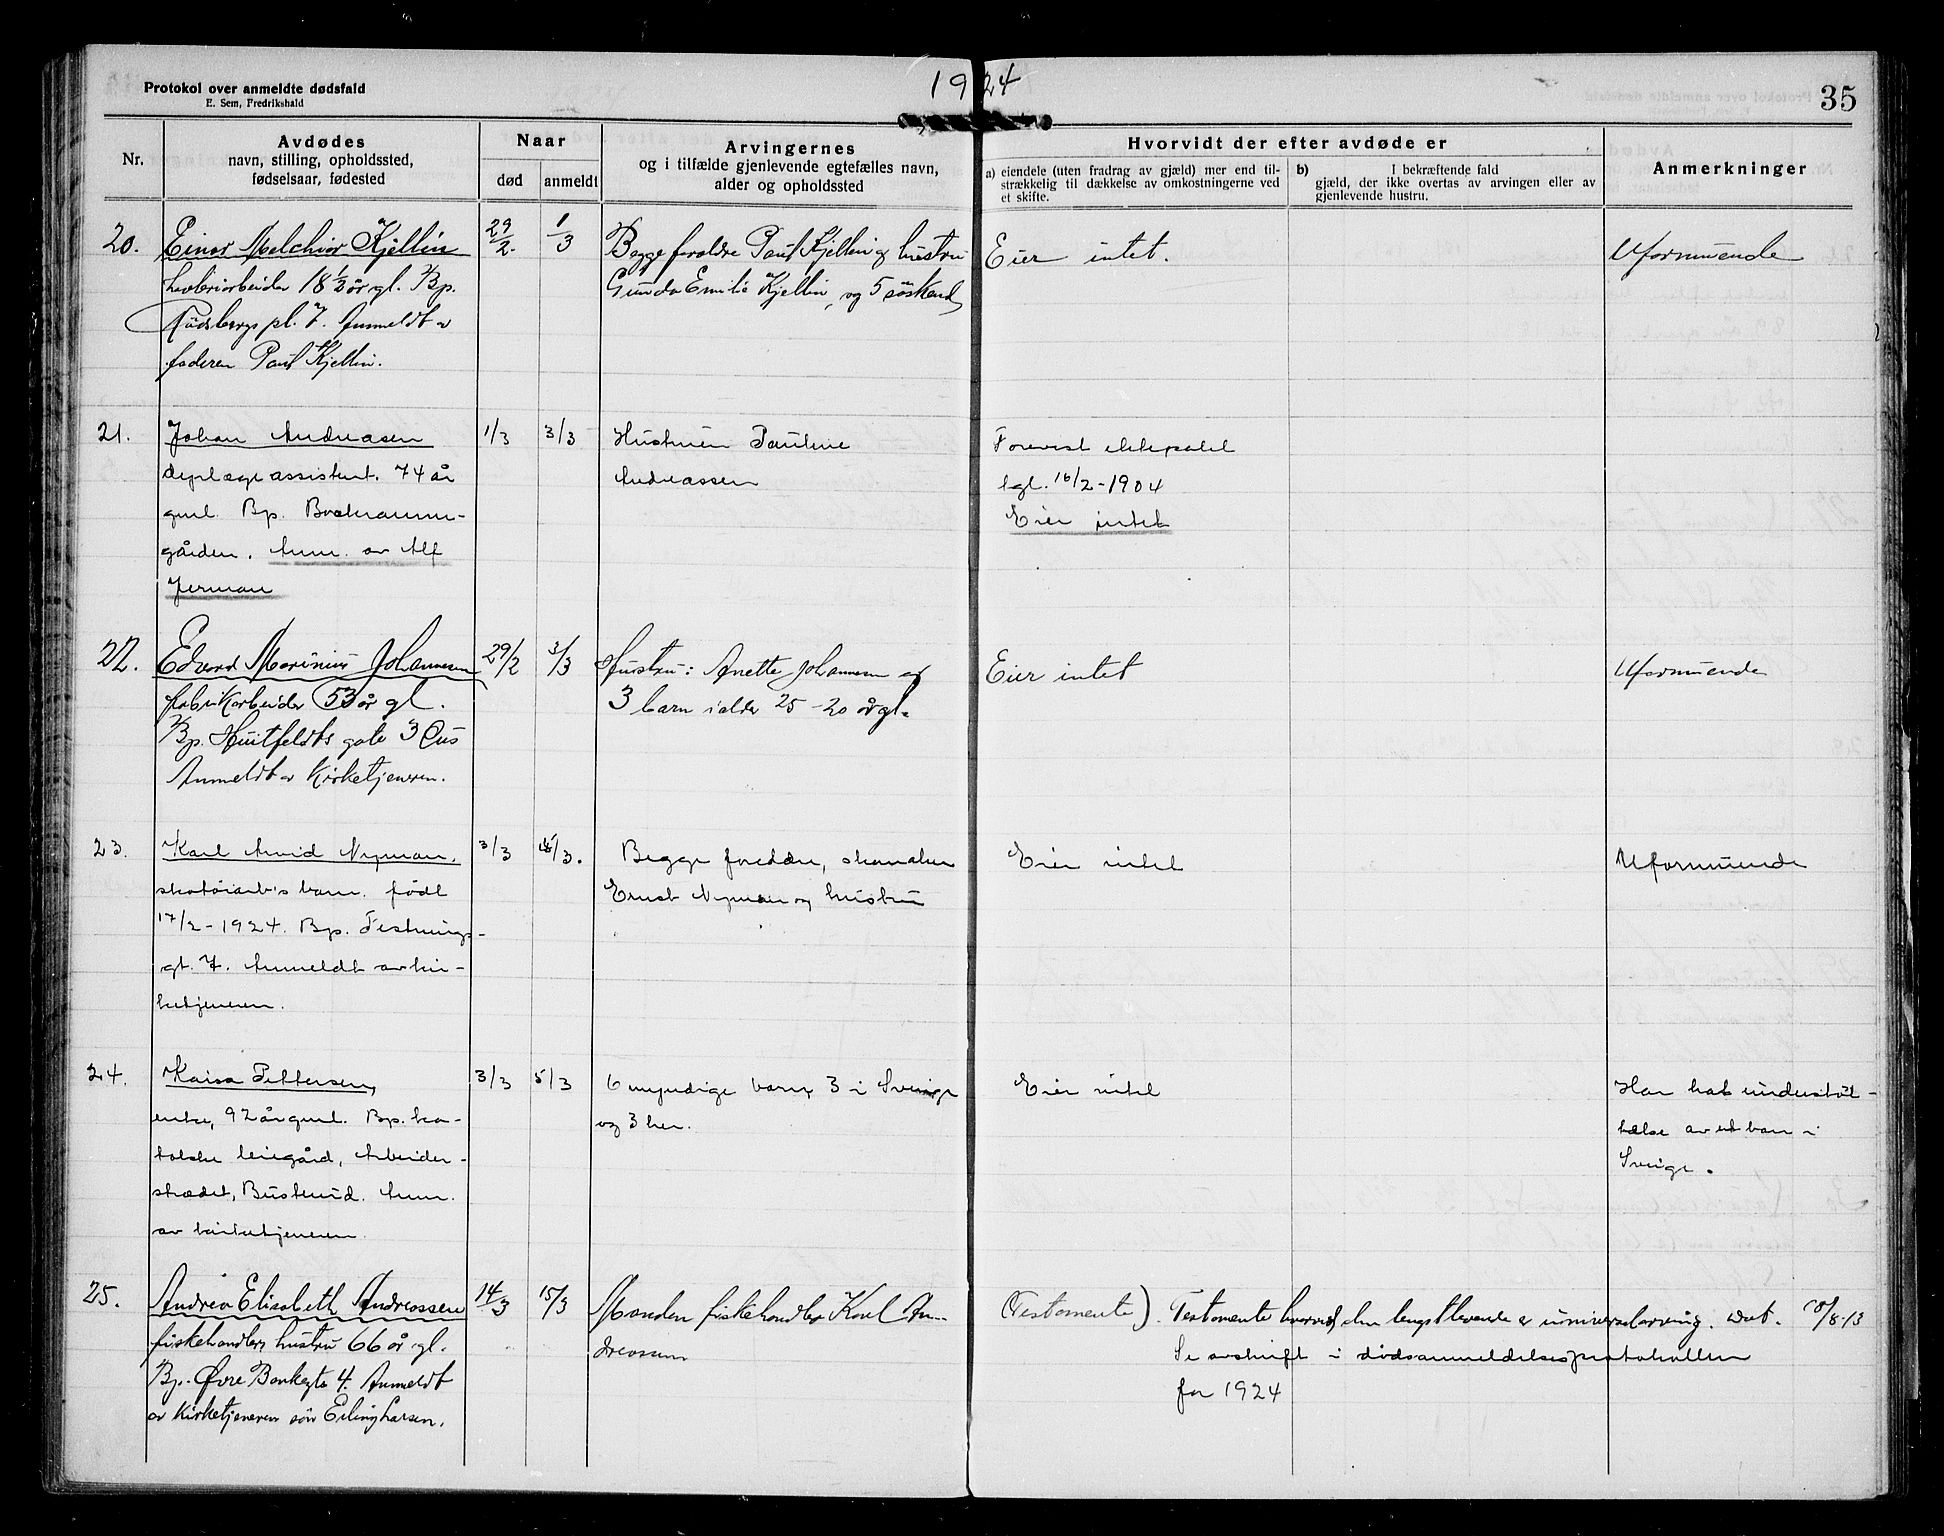 1924
35
Protokol over anmeldte dødsfald
E. Sem, Fredrikshald
Nr.
Avdødes
navn, stilling, opholdssted,
fødselsaar, fødested
Naar
død
anmeldt
Arvingernes
og i tilfælde gjenlevende egtefælles navn,
alder og opholdssted
Hvorvidt der efter avdøde er
a) eiendele (uten fradrag av gjæld) mer end til-
strækkelig til dækkelse av omkostningerne ved
et skifte.
b) I bekræftende fald
gjæld, der ikke overtas av arvingen eller av
gjenlevende hustru.
Anmerkninger
20.
Einar Melchior Kjellin
arbeider 18 1/2 år gl. Bp.
Rødsbergs pl. 7. Anmeldt av
faderen Paul Kjellin.
29/2.
1/3
Begge foreldre Paul Kjellin og hustru
Gunda Emilie Kjellin, og 5 søskend
Eier intet.
Uformuende
21.
Johan Andreasen
assistent. 74 år
gml. Bp.
gården. Anm. av Alf
Jerman
1/3
3/3
Hustruen Pauline
Andreassen
Forevist ektepakt
tgl. 16/2-1904
Eier intet
22.
Edvard Marinius Johannesen
fabrikarbeider 53 år gl.
Bp. Huitfeldts gate 3
Anmeldt av Kirketjeneren.
29/2
3/3
Hustru: Anette Johannesen og
3 barn i alder 25-20 år gl.
Eier intet
Uformuende
23.
Karl Arvid Nyman,
skotøiarb's barn. født
17/2-1924. Bp. Festnings-
gt. 7. Anmeldt av kir-
ketjeneren.
3/3
5/3.
Begge foreldre, skomaker
Ernst Nyman og hustru
Eier intet
Uformuende
24.
Kaisa Pettersen,
enke, 92 år gml. Bp. ka-
tolske leiegård, Arbeider-
strædet, Buskerud. Anm.
av kirketjeneren.
3/3
5/3
6 myndige barn, 3 i Sverige
og 3 her.
Eier intet
Har hat understøt-
telse av et barn i
Sverige.
25.
Andrea Elisabeth Andreassen
fiskehandlers hustru 66 år gl.
Bp. Øvre Bankegte 4. Anmeldt
av Kirketjeneren søn Erling Larsen.
14/3
15/3
Manden fiskehandler Karl An-
dreassen
(Testamente). Testamente hvorved den lengstlevende er universalarving. Dat. 18/8-13
Se avskrift i dødsanmeldelsesprotokollen
for 1924